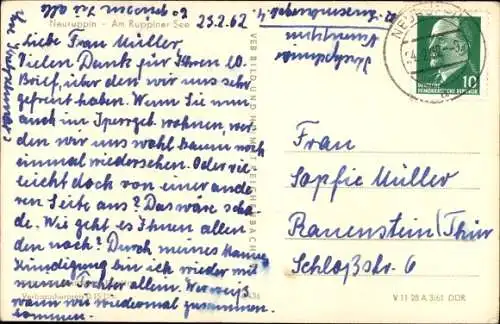 Neuruppin - Am Ruppiner See
23.2.62
Liebe Frau Müller,
Vielen Dank für Ihren lb.
Brief, über den wir uns sehr
gefreut haben. Wenn Sie nun
auch im Sperrgeb. wohnen, wer-
den wir uns wohl kaum noch
einmal wiedersehen. Oder viel-
leicht doch von einer ande-
ren Seite aus? Das wäre scha-
de. Wie geht es Ihnen allen
denn noch? Durch meines Mannes
Kündigung bin ich wieder mit
meiner Tochter allein. Wer weiß,
wann wir wiedermal zusammen
kommen.
Neuruppin
VEB BILD UND HEIMAT REICHENBACH
10
DEUTSCHE
DEMOKRATISCHE REPUBLIK
Frau
Sophie Müller
Rauenstein/Thür
Schloßstr. 6
V 11 28 A 3/61 DDR